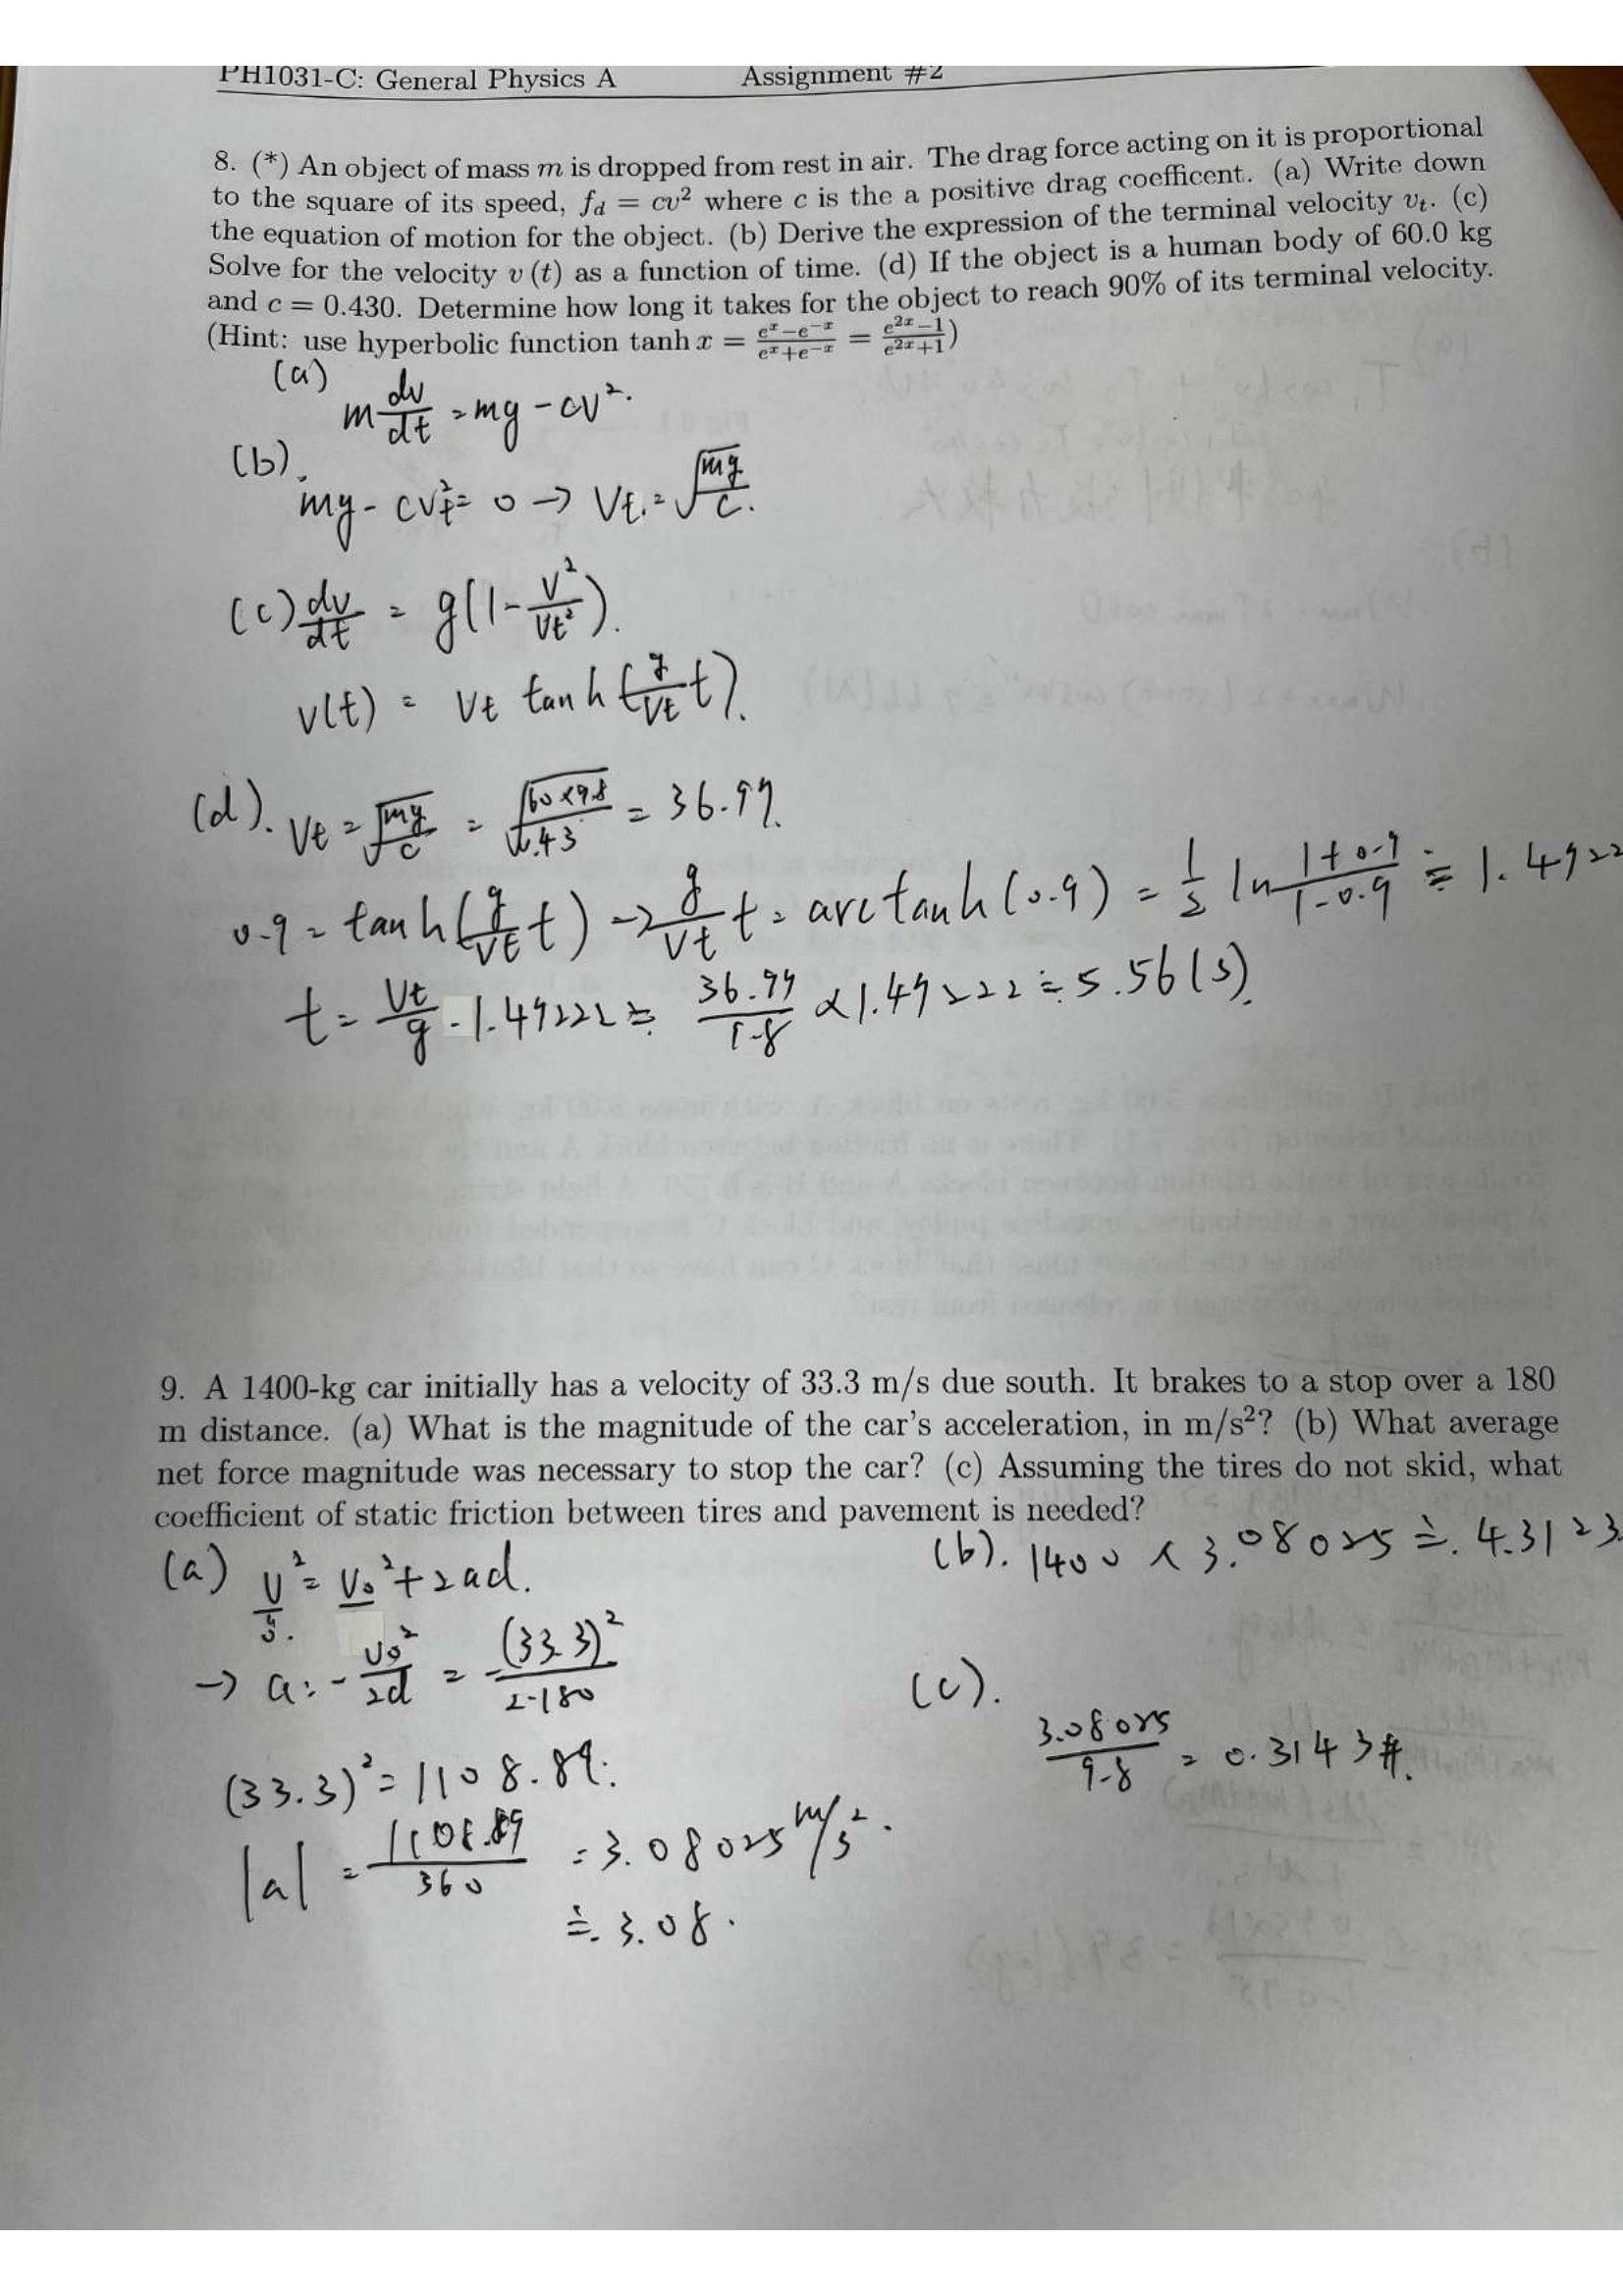 PH1031-C: General Physics A Assignment #2
8. (*) An object of mass m is dropped from rest in air. The drag force acting on it is proportional
to the square of its speed, f_d = cv² where c is the a positive drag coefficent. (a) Write down
the equation of motion for the object. (b) Derive the expression of the terminal velocity v_t. (c)
Solve for the velocity v (t) as a function of time. (d) If the object is a human body of 60.0 kg
and c = 0.430. Determine how long it takes for the object to reach 90% of its terminal velocity.
(Hint: use hyperbolic function tanh x = (e^x−e^−x)/(e^x+e^−x) = (e^2x−1)/(e^2x+1))
(a)
m dv/dt = mg - cv².
(b).
mg - cvt² = 0 → Vt = √(mg/c).
(c) dv/dt = g(1 - V²/Vt²).
v(t) = Vt tanh(g/Vt t).
(d). Vt = √(mg/c) = √(60×9.8/0.43) = 36.97.
0.9 = tanh(g/Vt t) → g/Vt t = arctanh(0.9) = 1/2 ln (1+0.9)/(1-0.9) ≒ 1.4722
t = Vt/g · 1.47222 ≒ 36.97/9.8 × 1.47222 ≒ 5.56(s).
9. A 1400-kg car initially has a velocity of 33.3 m/s due south. It brakes to a stop over a 180
m distance. (a) What is the magnitude of the car's acceleration, in m/s²? (b) What average
net force magnitude was necessary to stop the car? (c) Assuming the tires do not skid, what
coefficient of static friction between tires and pavement is needed?
(a) V² = V₀² + 2ad.
→ a = - V₀²/2d = -(33.3)²/2·180
(33.3)² = 1108.89.
|a| = 1108.89/360 = 3.08025 m/s².
≒ 3.08.
(b). 1400 × 3.08025 ≒ 4.3123
(c).
3.08025/9.8 = 0.3143 #.